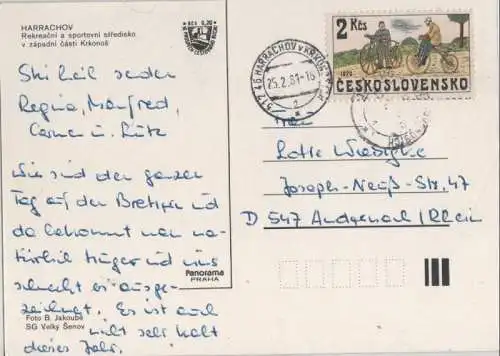 HARRACHOV
Rekreační a sportovní středisko
v západní části Krkonoš
Ski heil senden
Regina, Manfred,
Carmen u. Lutz
Wir sind den ganzen
Tag auf den Brettern und
da bekommt man na-
türlich Hunger und uns
schmeckt es ausge-
zeichnet. Es ist auch
nicht sehr kalt
dieses Jahr.
Panorama
PRAHA
Foto B. Jakoubě
SG Velký Šenov
KČS 0,30
512 46 HARRACHOV V KRKONOŠÍCH
25.2.81-16
2 Kčs
1870
ČESKOSLOVENSKO
Lotte
Joseph-Neuß-Str. 47
D 547 Andernach/Rhein